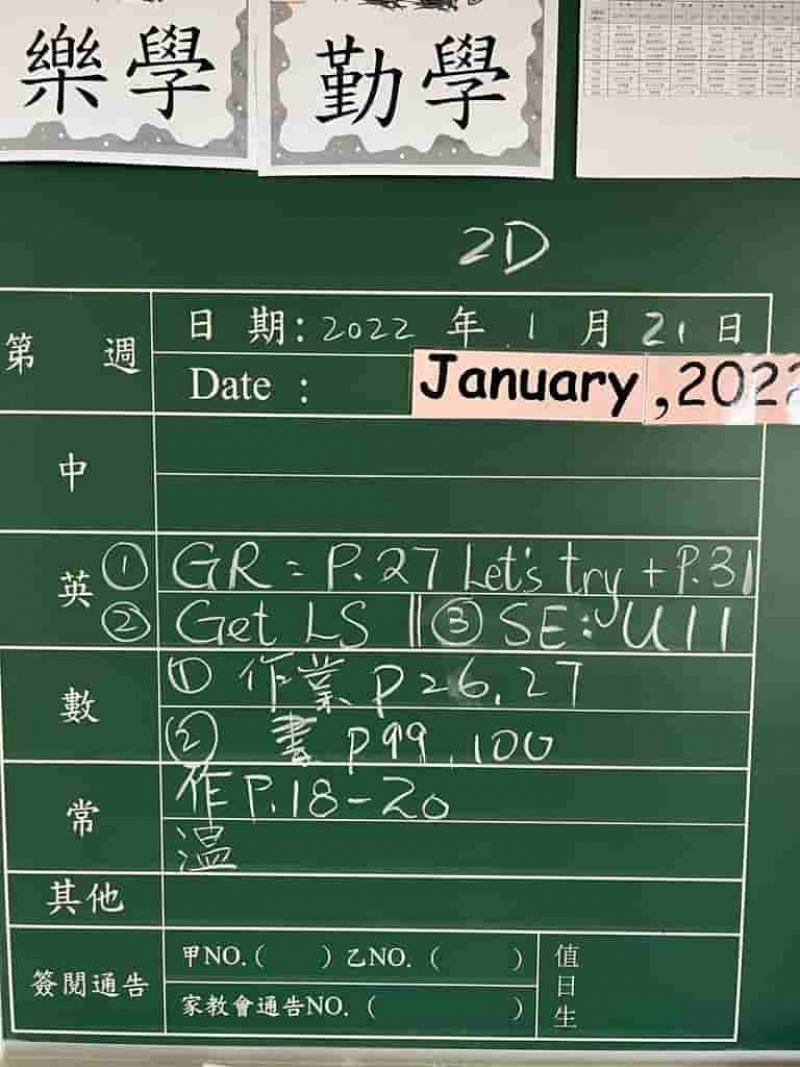 樂學
勤學
2D
第 週
日 期：2022 年 1 月 21 日
Date :
January ,2022
中
英
① GR = P.27 Let's try + P.31
② Get LS ③ SE: U11
數
① 作業 P26, 27
② 書 P99, 100
常
作 P.18-20
溫
其他
簽閱通告
甲NO. ( ) 乙NO. ( )
家教會通告NO. ( )
值日生